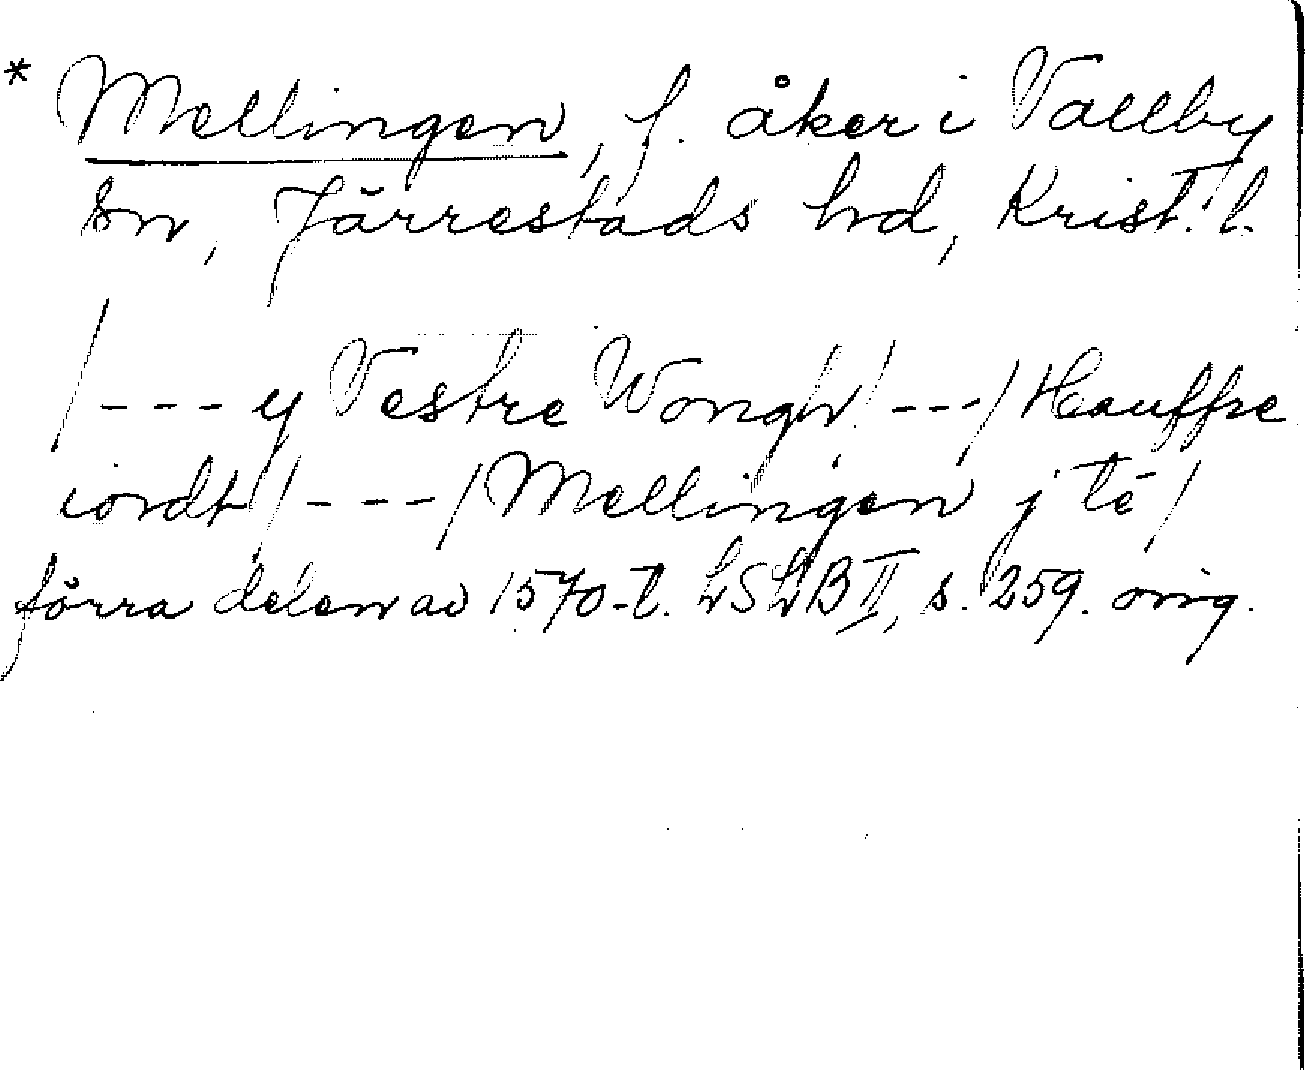 * Mellingen, f. åker i Vallby
sn, Järrestads hd, Krist. l.
/---y Vestre Wongh/---/Hauffre
iordt/---/Mellingen j tē/
förra delen av 1570-t. LSLB II, s. 259. orig.